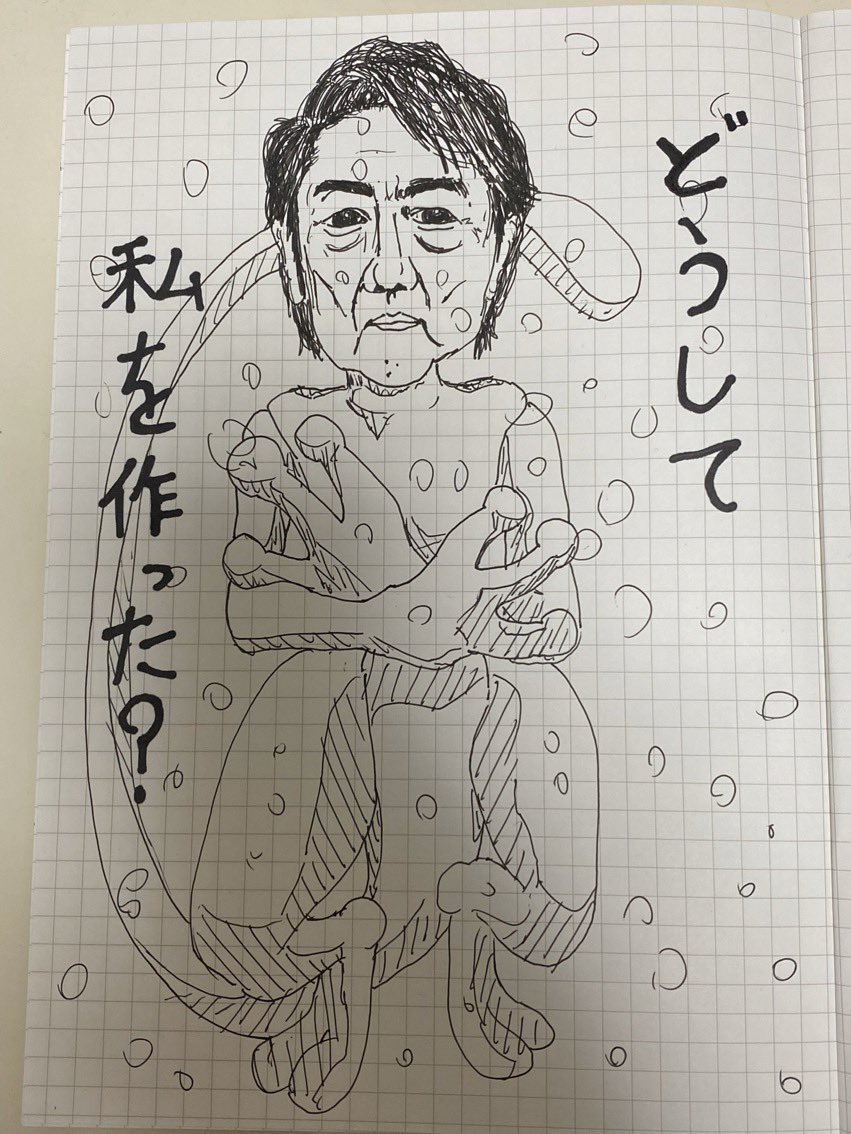 どうして
私を作った?